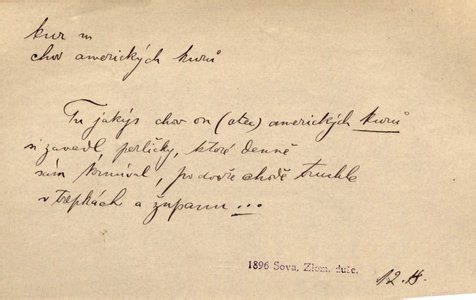 kur m
chov amerických kurů
Tu jakýs chov on (otec) amerických kurů
si zavedl, perličky, které denně
sám krmíval, po dvoře chodě truchle
v trepkách a županu ...
1896 Sova, Zlom. duše.